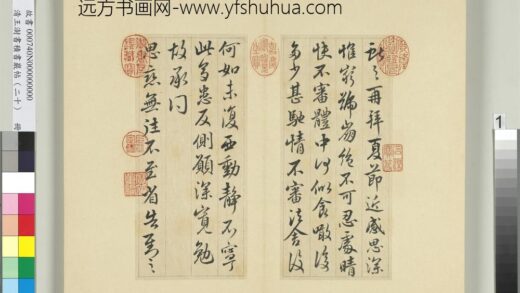 远方书画网-www.yfshuhua.com
故書 000740N000000000
清王澍書積書巖帖（二十） 冊
獻之再拜夏節近感思深
惟窮號崩絶不可忍處晴
快不審體中何似食噉復
多少甚馳情不審法舍復
何如未復西動靜不寧
此多患反側願深寬勉
故承問
思戀無往不至省告對之
1